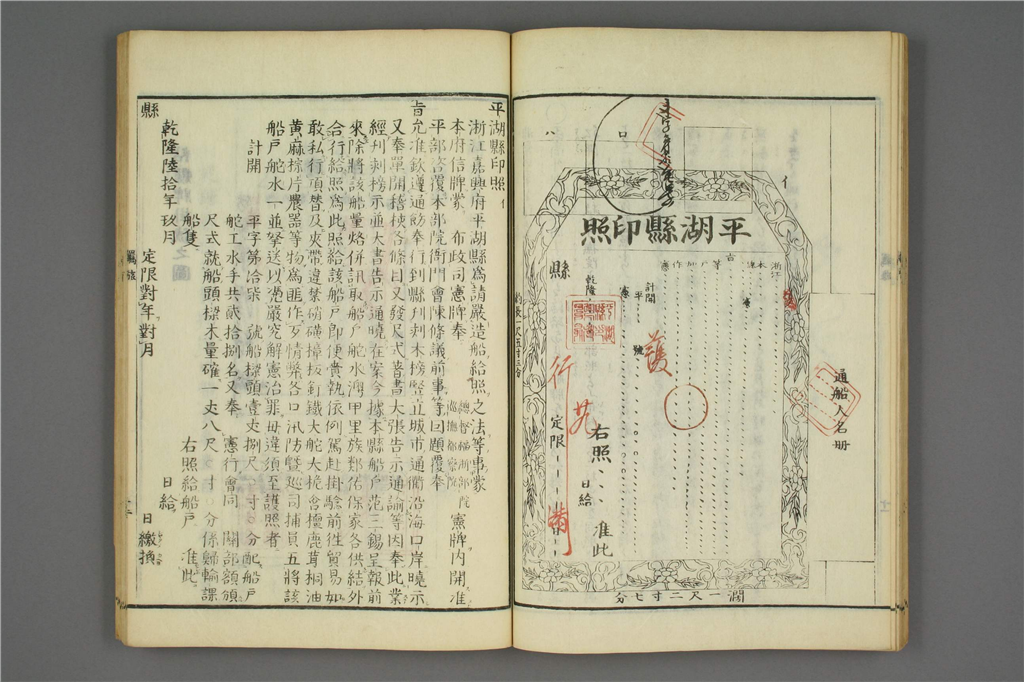 平湖縣印照
護
計開
平 號
憲
右照 准此
乾隆
日給
定限
行
縣
通船人名冊
濶一尺二寸七分
平湖縣印照
浙江嘉興府平湖縣爲請嚴造船給照之法等事蒙
本府信牌蒙 布政司憲牌奉 總督福浙部院 巡撫都察院 憲牌內開准
平部咨覆本部院衙門會陳條議前事等因題覆奉
旨允准欽遵通飭奉行到縣刋刻木榜竪立城市通衢沿海口岸曉示
又奉單開稽核各條目又發尺式著書大張告示通諭等因奉此業
經刋刻榜示並大書告示通曉在案今據本縣船戶范三錫呈報前
來除將該船量烙併訊取船戶舵水澳甲里族鄰佑保家各供結外
合行給照爲此照給該船戶即便賫執依例駕赴掛驗前徃貿易如
敢私行頂替及夾帶違禁硝磺樟板釘鐵大舵大桅含檀鹿茸桐油
黃麻棕片農器等物爲匪作歹情弊各口汛防曁巡司捕員立將該
船戶舵水一並拏送以凴嚴究解憲治罪毋違須至護照者
計開
平字第洽柒 號船樑頭壹丈捌尺 寸 分配船戶
舵工水手共貳拾捌名又奉 憲行會同 關部額頒
尺式就船頭樑木量確一丈八尺 寸 分係歸輸課
船隻
右照給船戶 准此
乾隆陸拾年玖月 日給
縣 定限對年對月 日繳換